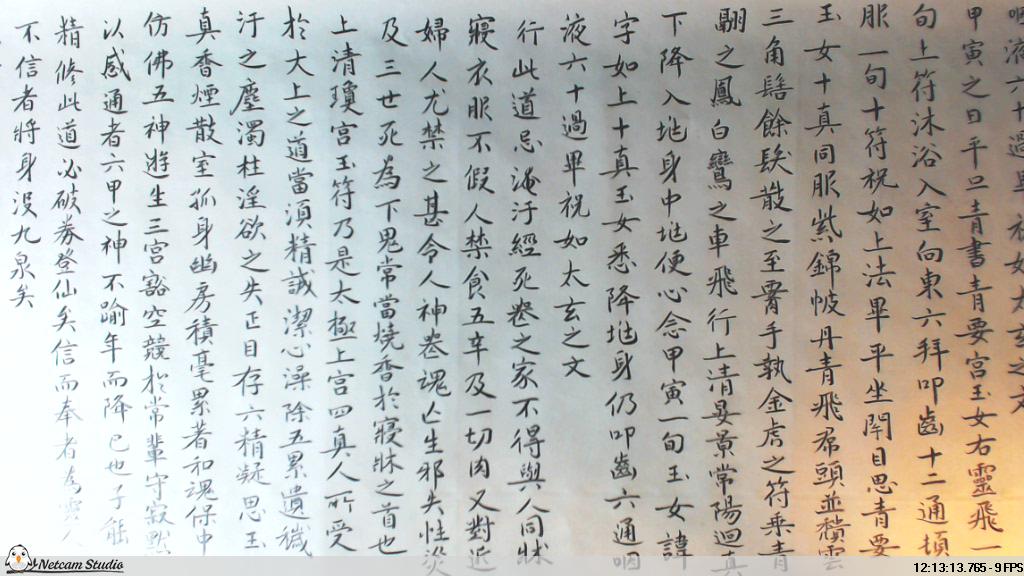 咽液六十過畢祝如太玄之文
甲寅之日平旦青書青要宮玉女右靈飛一
旬上符沐浴入室向東六拜叩齒十二通頓
服一旬十符祝如上法畢平坐閉目思青要
玉女十真同服紫錦帔丹青飛帬頭並頹雲
三角髻餘髮散之至腰手執金虎之符乘青
翮之鳳白鸞之車飛行上清晏景常陽迴真
下降入地身中地便心念甲寅一旬玉女諱
字如上十真玉女悉降地身仍叩齒六通咽
液六十過畢祝如太玄之文
行此道忌淹汙經死喪之家不得與人同牀
寢衣服不假人禁食五辛及一切肉又對近
婦人尤禁之甚令人神喪魂亡生邪失性災
及三世死為下鬼常當燒香於寢牀之首也
上清瓊宮玉符乃是太極上宮四真人所受
於太上之道當須精誠潔心澡除五累遺穢
汙之塵濁杜淫欲之失正目存六精凝思玉
真香煙散室孤身幽房積毫累著和魂保中
仿佛五神遊生三宮豁空競於常輩守寂默
以感通者六甲之神不踰年而降已也子能
精修此道必破券登仙矣信而奉者為靈人
不信者將身沒九泉矣
Netcam Studio
12:13:13.765 - 9 FPS